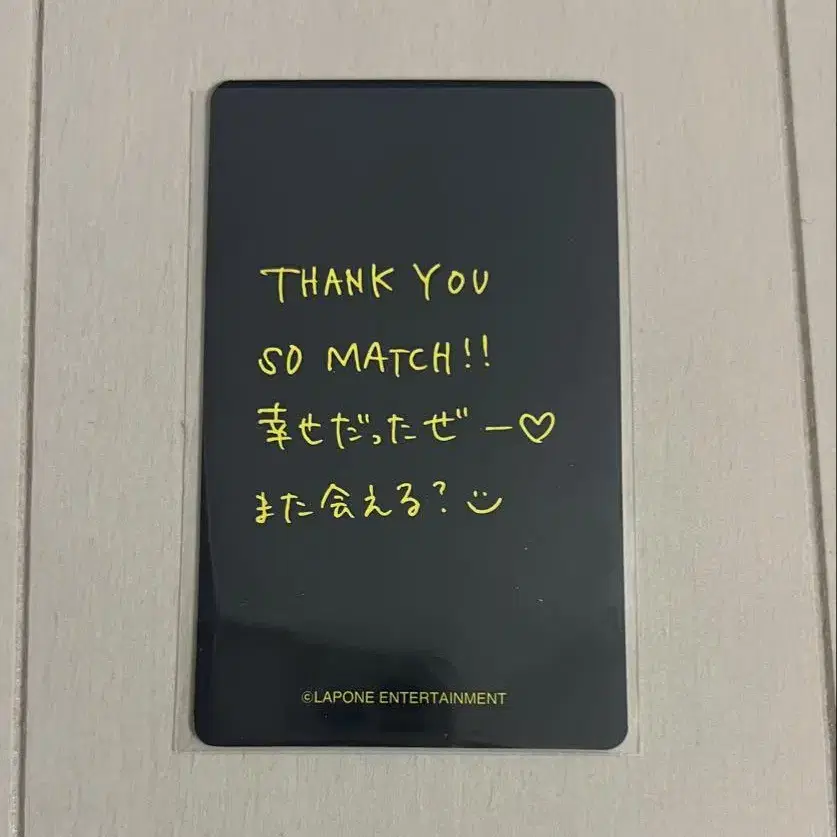 THANK YOU
SO MATCH!!
幸せだったぜー♡
また会える?☺
©LAPONE ENTERTAINMENT